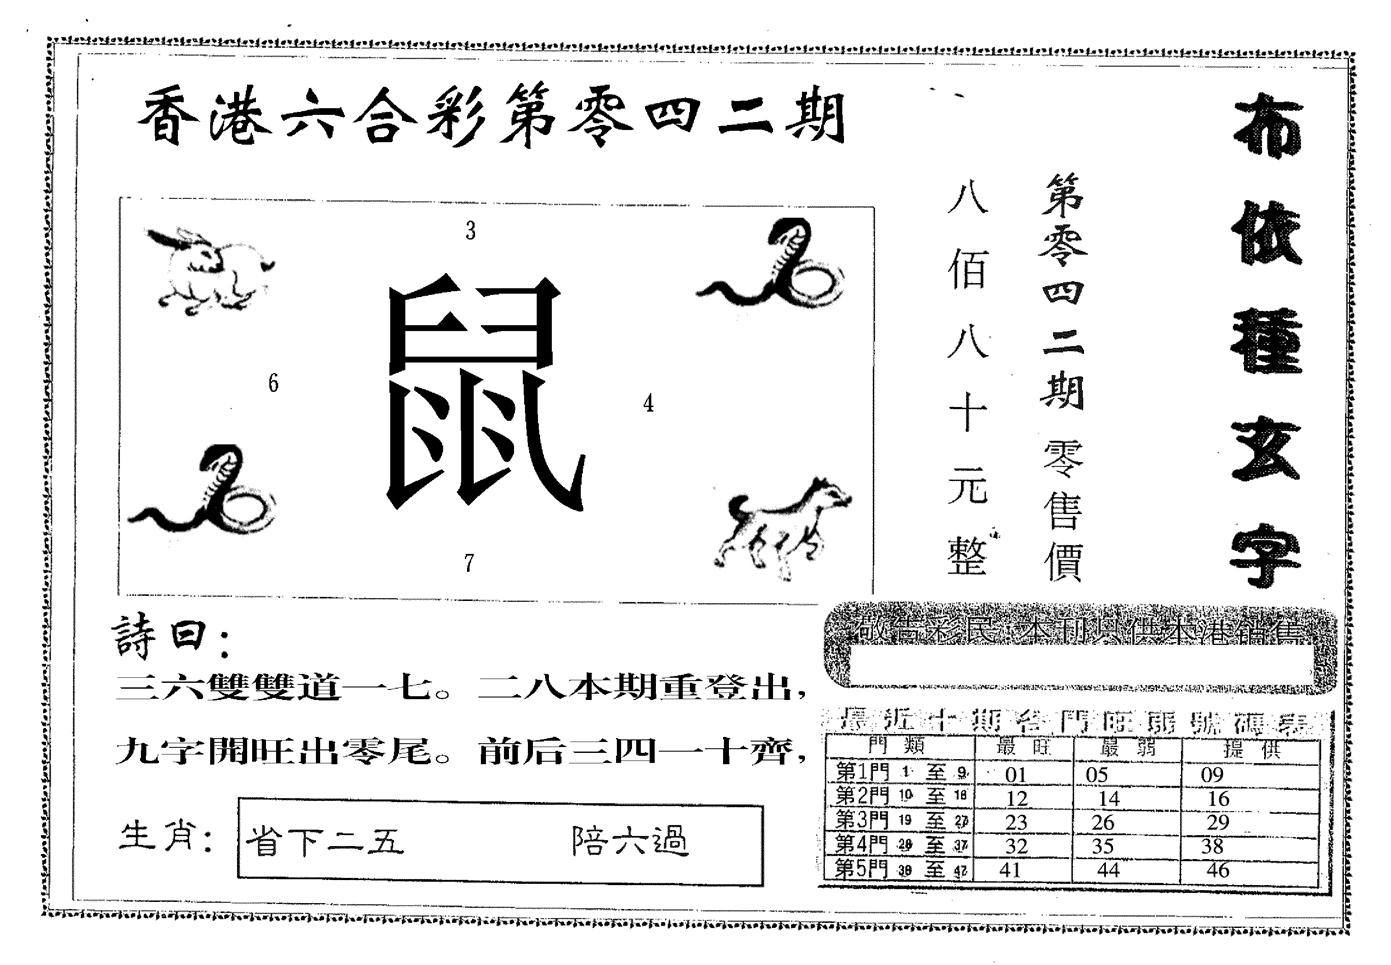 香港六合彩第零四二期
布依種玄字
第零四二期零售價
八佰八十元整
3
鼠
6
4
7
詩曰：
三六雙雙道一七。二八本期重登出，
九字開旺出零尾。前后三四一十齊，
生肖：
省下二五 陪六過
敬告彩民：本刊只供本港銷售
最近十期各門旺弱號碼表
門類 最旺 最弱 提供
第1門 1 至 9 01 05 09
第2門 10 至 18 12 14 16
第3門 19 至 27 23 26 29
第4門 28 至 37 32 35 38
第5門 38 至 47 41 44 46